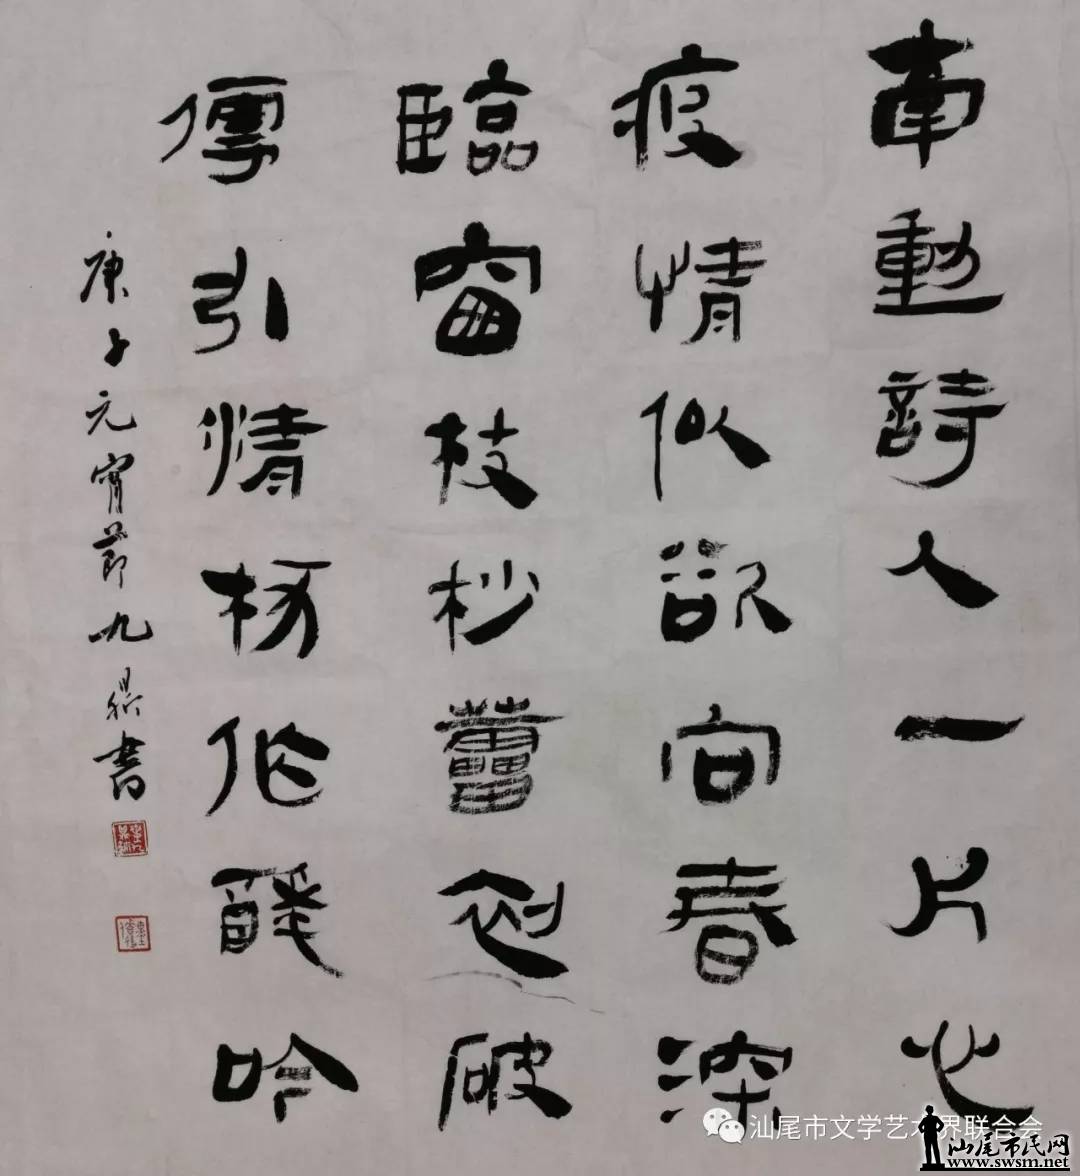 牽動詩人一片心
疫情似欲向春深
臨窗枝杪蕾初破
傳引情作吟
庚子元宵節九書
汕尾市文学艺术界联合会
汕尾市民网
www.swsm.net